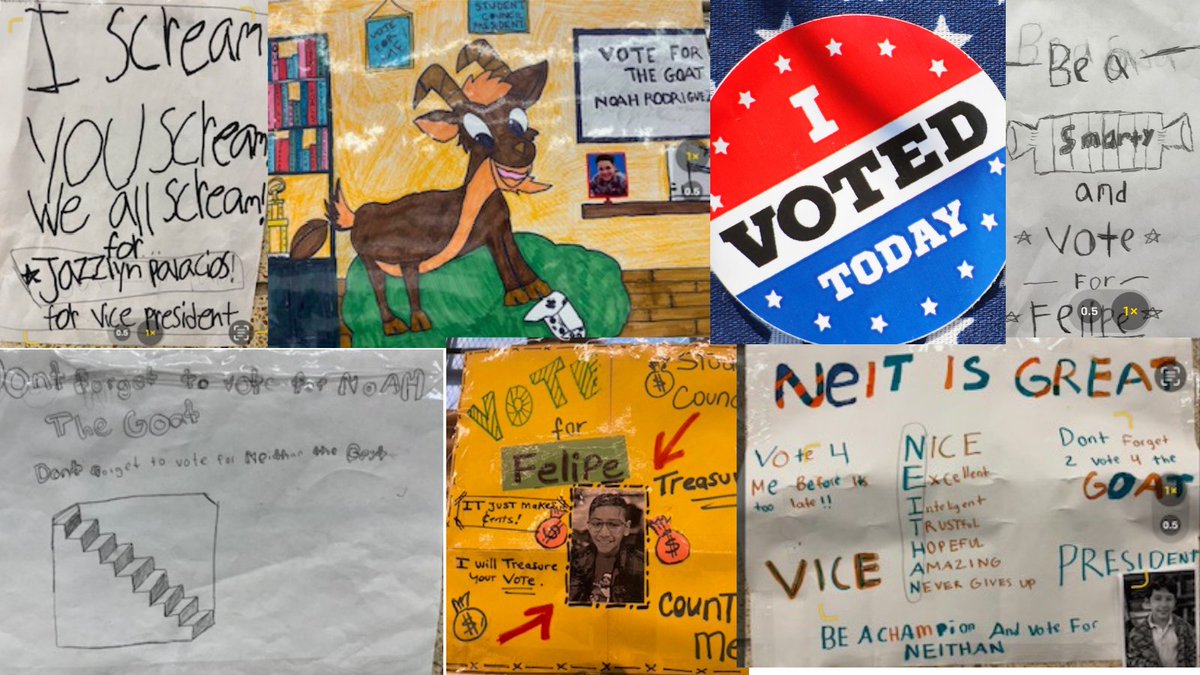 I scream
YOU scream
We all scream!
for
Jazzlyn Palacios!
for vice president
0.5
1×
VOTE
FOR
ME
STUDENT
COUNCIL
PRESIDENT
VOTE FOR
THE GOAT
NOAH RODRIGUEZ
1×
0.5
I
VOTED
TODAY
Be a
Smarty
and
Vote
For
Felipe
0.5
1×
Dont forget to vote for NOAH
The Goat
Dont forget to vote for Neithan the Goat
VOTE
for
Felipe
Stud
Counc
Treasur
IT just makes
cents!
I will Treasure
your VOTE.
COUNT
Me
NEIT IS GREAT
Vote 4
Me Before its
too late!!
NICE
Excellent
Inteligent
TRUSTFUL
HOPEFUL
AMAZING
NEVER GIVES UP
Dont Forget
2 vote 4 the
GOAT
VICE
PRESIDENT
BE A CHAMPION And Vote For
NEITHAN
1×
0.5